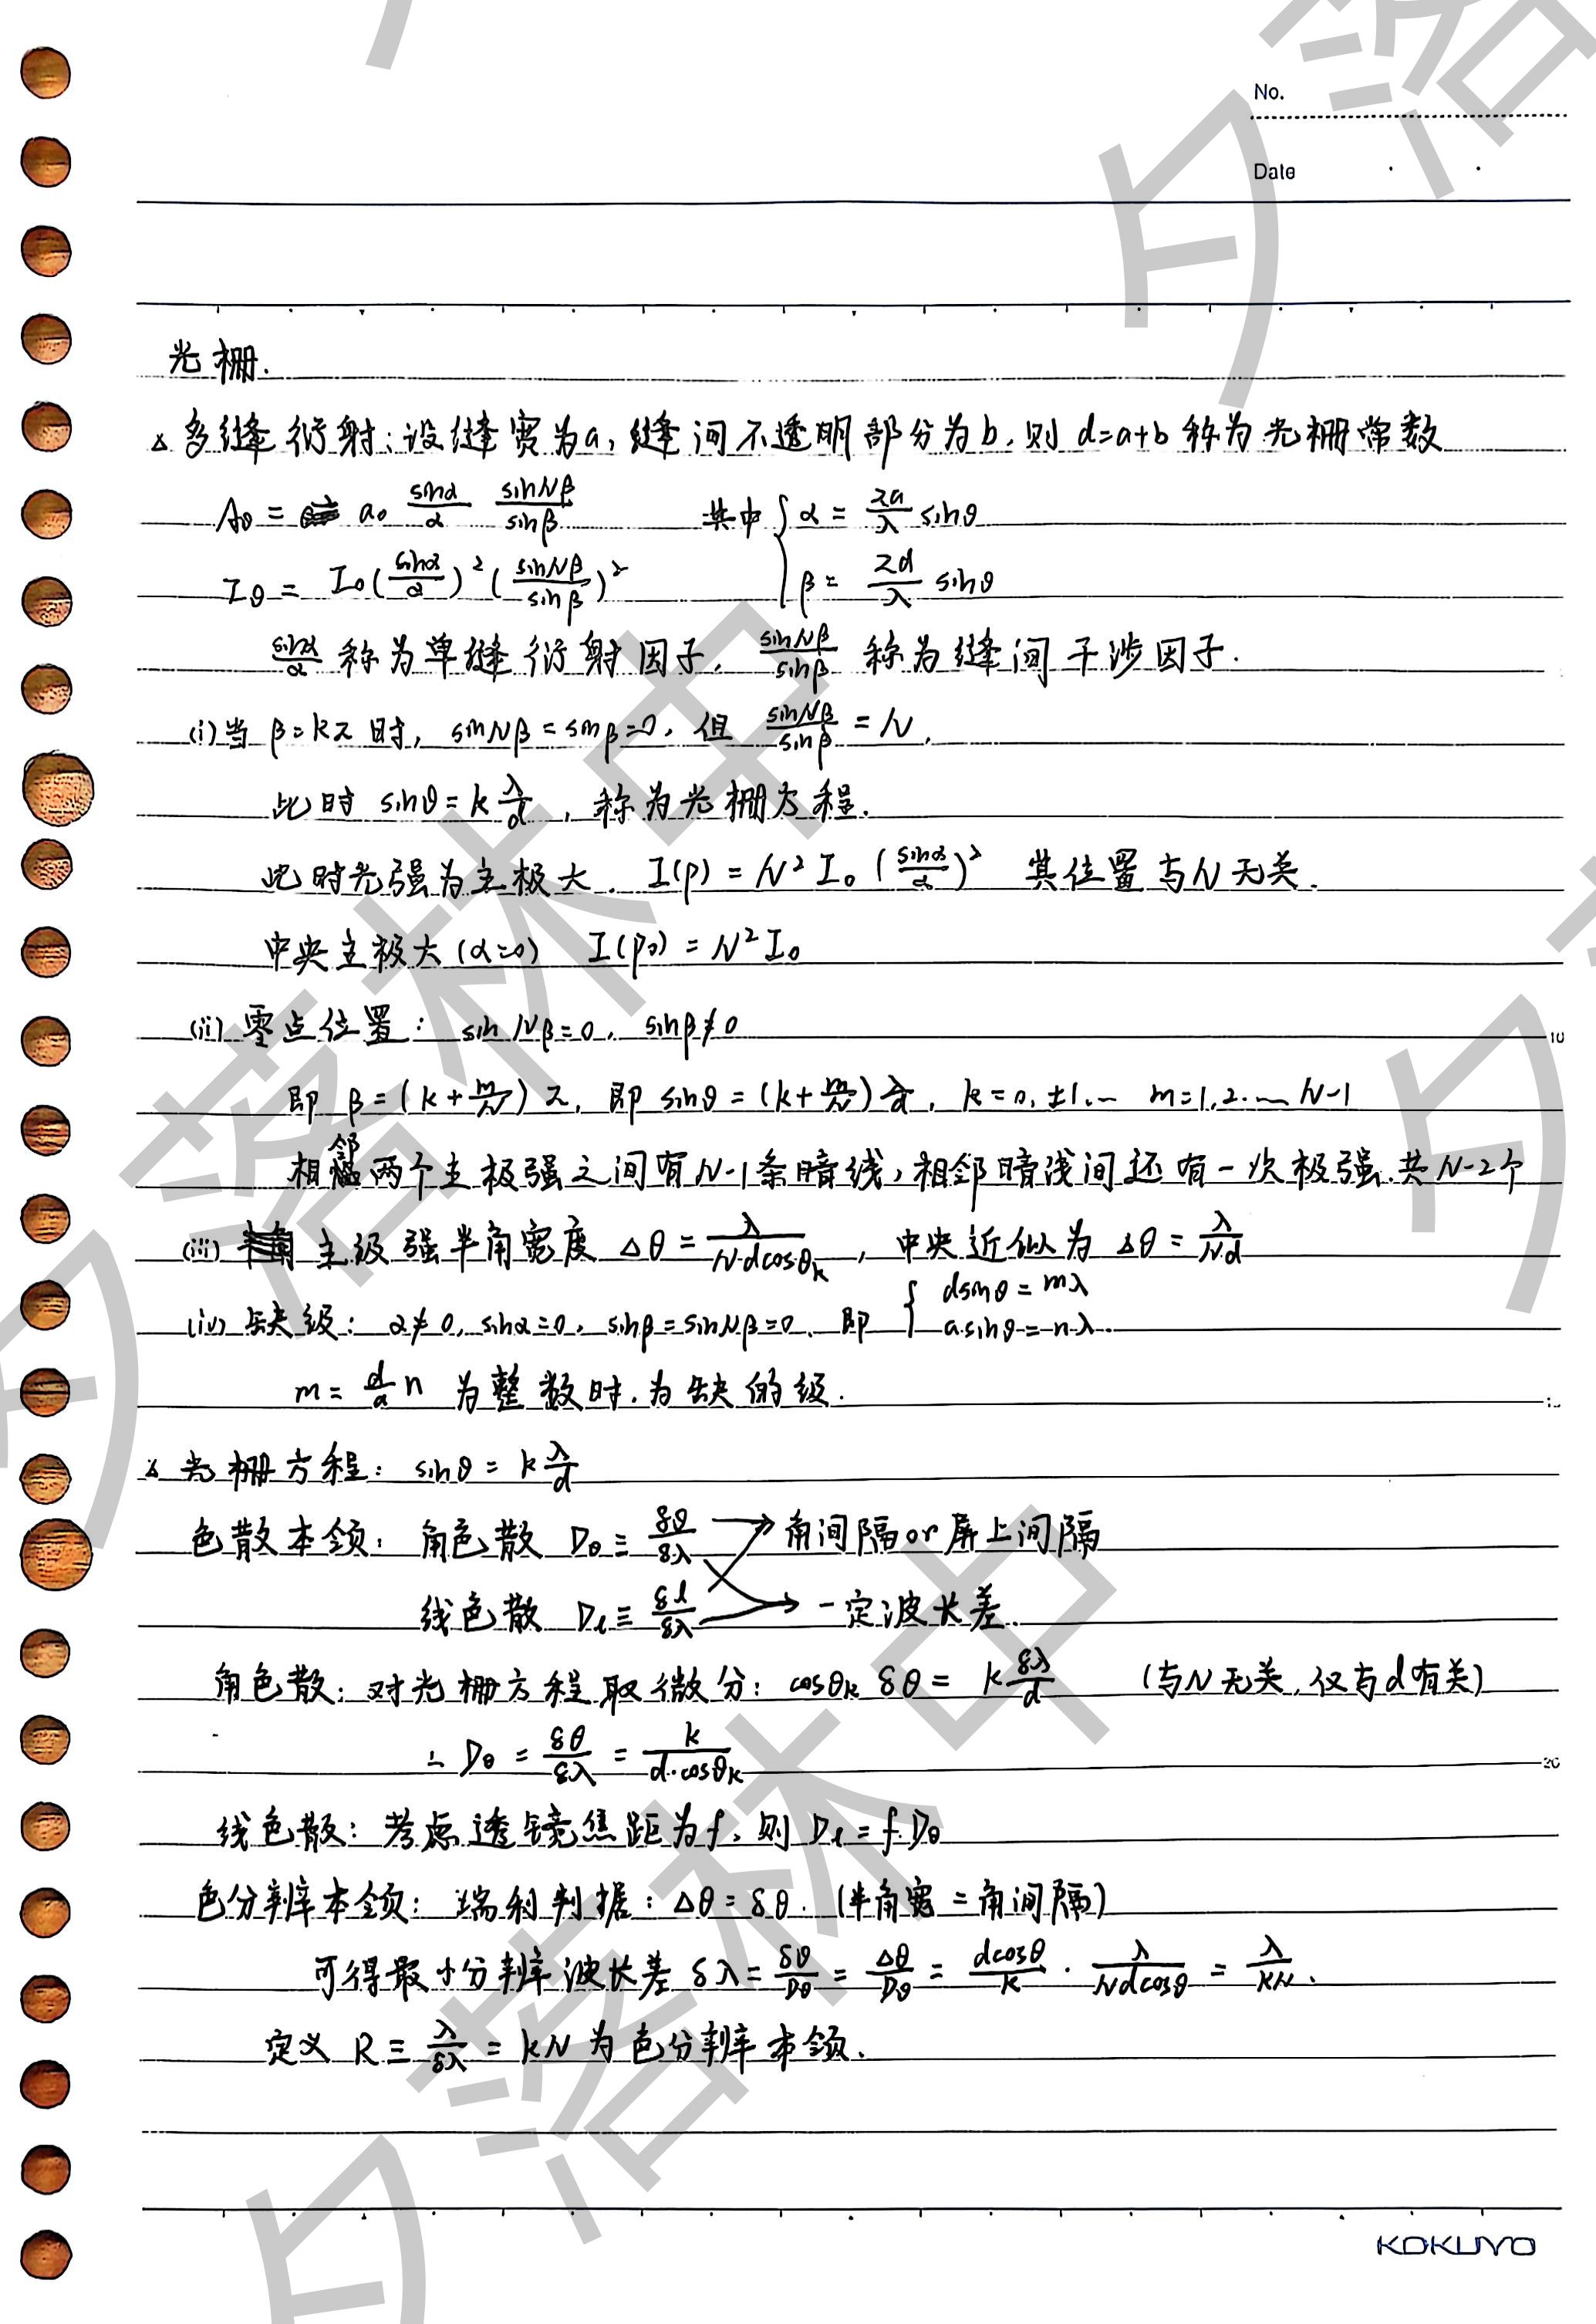 No.
Date
光栅.
△ 多缝衍射:设缝宽为a,缝间不透明部分为b,则 d=a+b 称为光栅常数
Aθ = a₀ sinα/α sinNβ/sinβ 其中 { α = πa/λ sinθ
Iθ = I₀(sinα/α)²(sinNβ/sinβ)² β = πd/λ sinθ
sinα/α 称为单缝衍射因子, sinNβ/sinβ 称为缝间干涉因子.
(i) 当 β=kπ 时, sinNβ=sinβ=0, 但 sinNβ/sinβ = N,
此时 sinθ=k λ/d, 称为光栅方程.
此时光强为主极大. I(P) = N² I₀ (sinα/α)² 其位置与N无关.
中央主极大 (α=0) I(P₀) = N² I₀
(ii) 零点位置: sin Nβ=0, sinβ≠0
即 β=(k+m/N)π, 即 sinθ=(k+m/N)λ/d, k=0,±1,… m=1,2,… N-1
相邻两个主极强之间有N-1条暗线,相邻暗线间还有一次极强,共N-2个
(iii) 主级强半角宽度 Δθ = λ/(N·dcosθk), 中央近似为 Δθ = λ/(N·d)
(iv) 缺级: α≠0, sinα=0, sinβ=sinNβ=0, 即 { dsinθ = mλ
a·sinθ = nλ.
m = d/a n 为整数时,为缺的级.
△ 光栅方程: sinθ = k λ/d
色散本领: 角色散 Dθ ≡ δθ/δλ → 角间隔 or 屏上间隔
线色散 Dl ≡ δl/δλ → 一定波长差.
角色散: 对光栅方程取微分: cosθk δθ = k δλ/d (与N无关,仅与d有关)
∴ Dθ = δθ/δλ = k/(d·cosθk)
线色散: 考虑透镜焦距为f, 则 Dl = f·Dθ
色分辨本领: 瑞利判据: Δθ=δθ. (半角宽=角间隔)
可得最小分辨波长差 δλ = δθ/Dθ = Δθ/Dθ = dcosθ/k · λ/(Ndcosθ) = λ/kN.
定义 R ≡ λ/δλ = kN 为色分辨本领.
KOKUYO
夕落林中